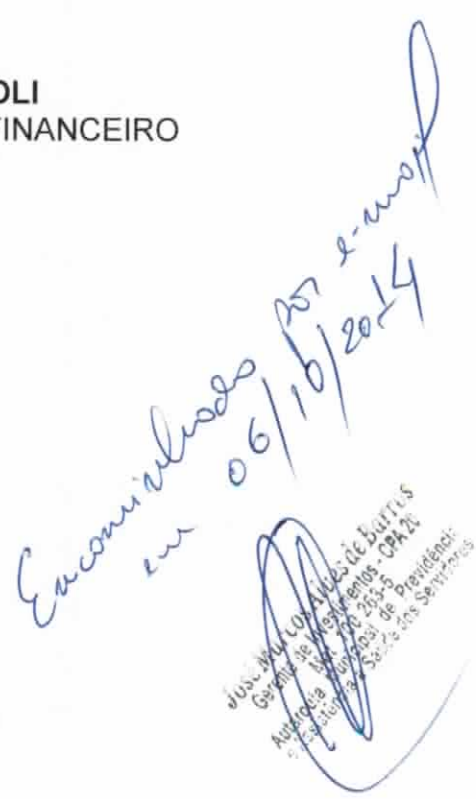 OLI
FINANCEIRO
Encaminhado por e-mail
em 06/10/2014
José Marcos Alves de Barros
Gerente de Investimentos - CPA 20
100 263-5
Autarquia Municipal de Previdência
e Assistência à Saúde dos Servidores